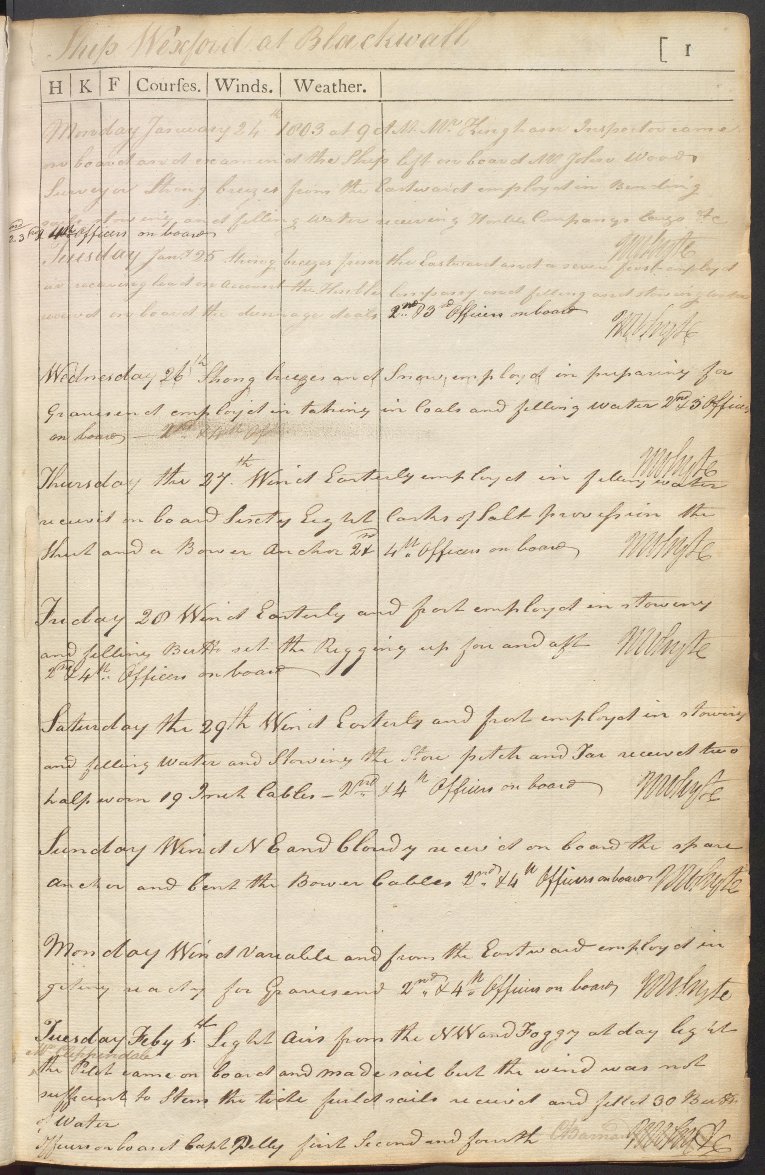 Ship Wexford at Blackwall
[ 1
H K F Courses. Winds. Weather.
Monday January 24th 1803 at 9 AM Mr Kingham Inspector came
on board and examend the Ship left on board Mr John Wood
Surveyor Strong breezes from the Eastward employd in Bending
stowing and felling water receiving Honble Companys Cargo &c
2nd 3rd & 4th Officers on board
MWhyte
Tuesday Jany 25 Strong breezes from the Eastward and a severe frost employd
in receiving lead on account the Honble Company and felling and stowing water
receivd on board the dunnage deals 2nd & 3rd Officers on board
MWhyte
Wednesday 26th Strong breezes and Snow, employd in preparing for
Gravesend employd in taking in Coals and felling water 2nd & 3 Officers
on board
MWhyte
Thursday the 27th Wind Easterly employd in felling water
receivd on board Sixty Eight Casks of Salt provesion the
Sheet and a Bower Anchor 2nd & 4th Officers on board MWhyte
Friday 28 Wind Easterly and frost employd in stowing
and felling Butts set the Rigging up for and aft MWhyte
2nd & 4th Officers on board
Saturday the 29th Wind Easterly and frost employd in stowing
and felling water and Stowing the Store pitch and Tar receivd two
half worn 19 Inch Cables – 2nd & 4th Officers on board MWhyte
Sunday Wind NE and Cloudy receivd on board the spare
Anchor and bent the Bower Cables 2nd & 4th Officers on board MWhyte
Monday Wind Variable and from the Eastward employd in
geting ready for Gravesend 2nd & 4th Officers on board MWhyte
Tuesday Feby 1st Light Airs from the NW and Foggy at day light
Mr Clippendale
the Pilot came on board and made sail but the wind was not
sufficent to Stem the tide furld sails receivd and felld 30 Butts
of Water
Officers on board Capt Pelly first Second and fourth MWhyte